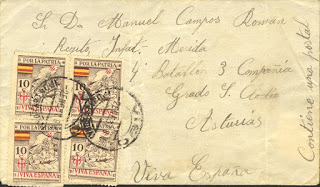 Sr. D. Manuel Campos Román
Regto, Infat.- Merida
4º Batallon 3 Compañia
Grado S. 
Asturias
Viva España
Contiene una postal
POR LA PATRIA
10
VIVA ESPAÑA
POR LA PATRIA
10
VIVA ESPAÑA
10
VIVA ESPAÑA
10
VIVA ESPAÑA